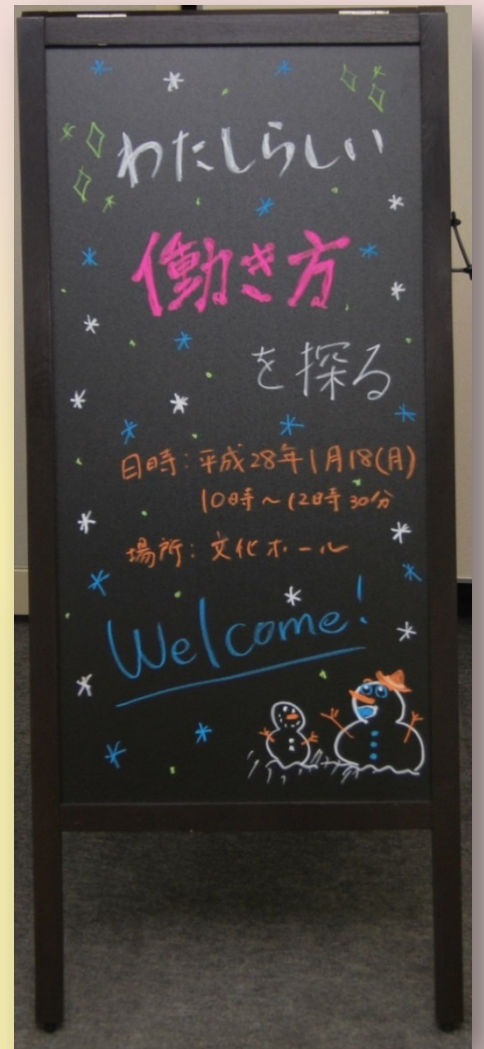 わたしらしい
働き方
を探る
日時：平成28年1月18(月)
10時～12時30分
場所：文化ホール
Welcome!